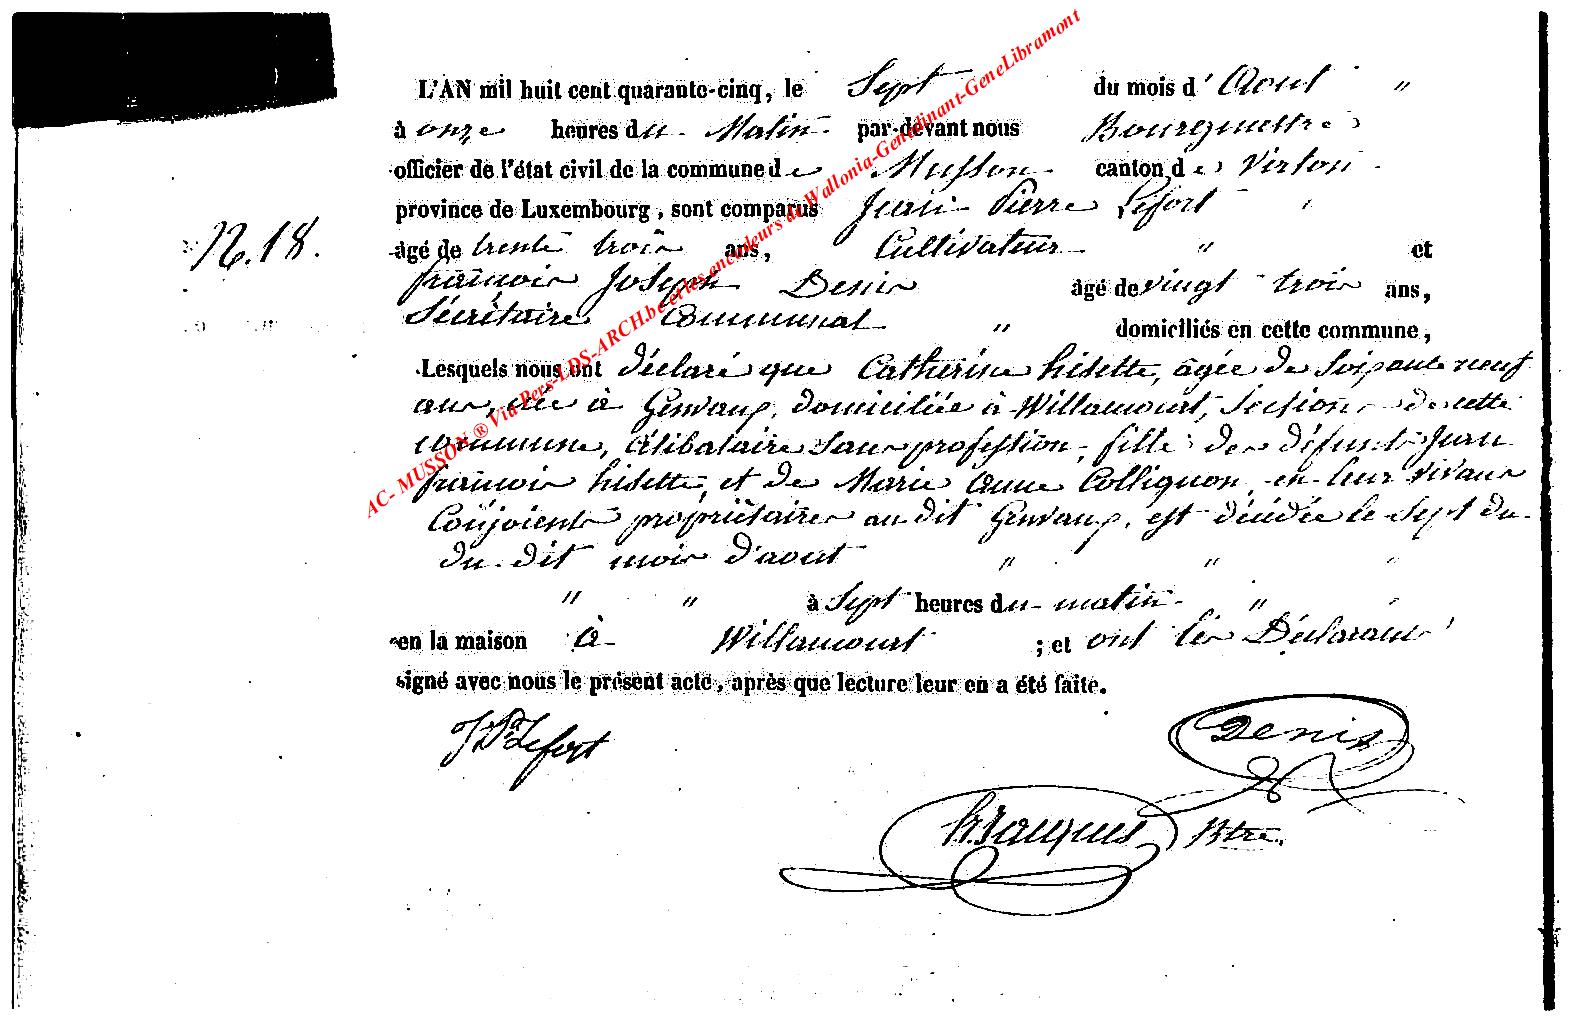 L'AN mil huit cent quarante-cinq, le Sept du mois d' Aout "
à onze heures du Matin par-devant nous Bourgmestre
officier de l'état civil de la commune de Musson canton de Virton
province de Luxembourg, sont comparus Jean Pierre Lefort "
N. 18.
âgé de trente trois ans, Cultivateur " et
françois Joseph Denis âgé de vingt trois ans,
Sécrétaire Communal " domiciliés en cette commune,
Lesquels nous ont déclaré que Catherine hisette, agée de Soixante neuf
ans, née à Genvaux, domiciliée à Willancourt, Section de cette
commune, Célibataire Sans profession, fille des défunts Jean
françois hisette, et de Marie anne Collignon, en leur vivans
Conjoients propriétaires au dit Genvaux, est décédée le Sept du
du dit mois d'aout " " "
" " à Sept heures du matin " "
en la maison à Willancourt ; et ont les Déclarans
signé avec nous le présent acte, après que lecture leur en a été faite.
JPre Lefort
Denis
h. Jacques Btre.
AC- MUSSON ® Via Pers-LDS-ARCH.be et les encodeurs de Wallonia-Genedinant-GeneLibramont